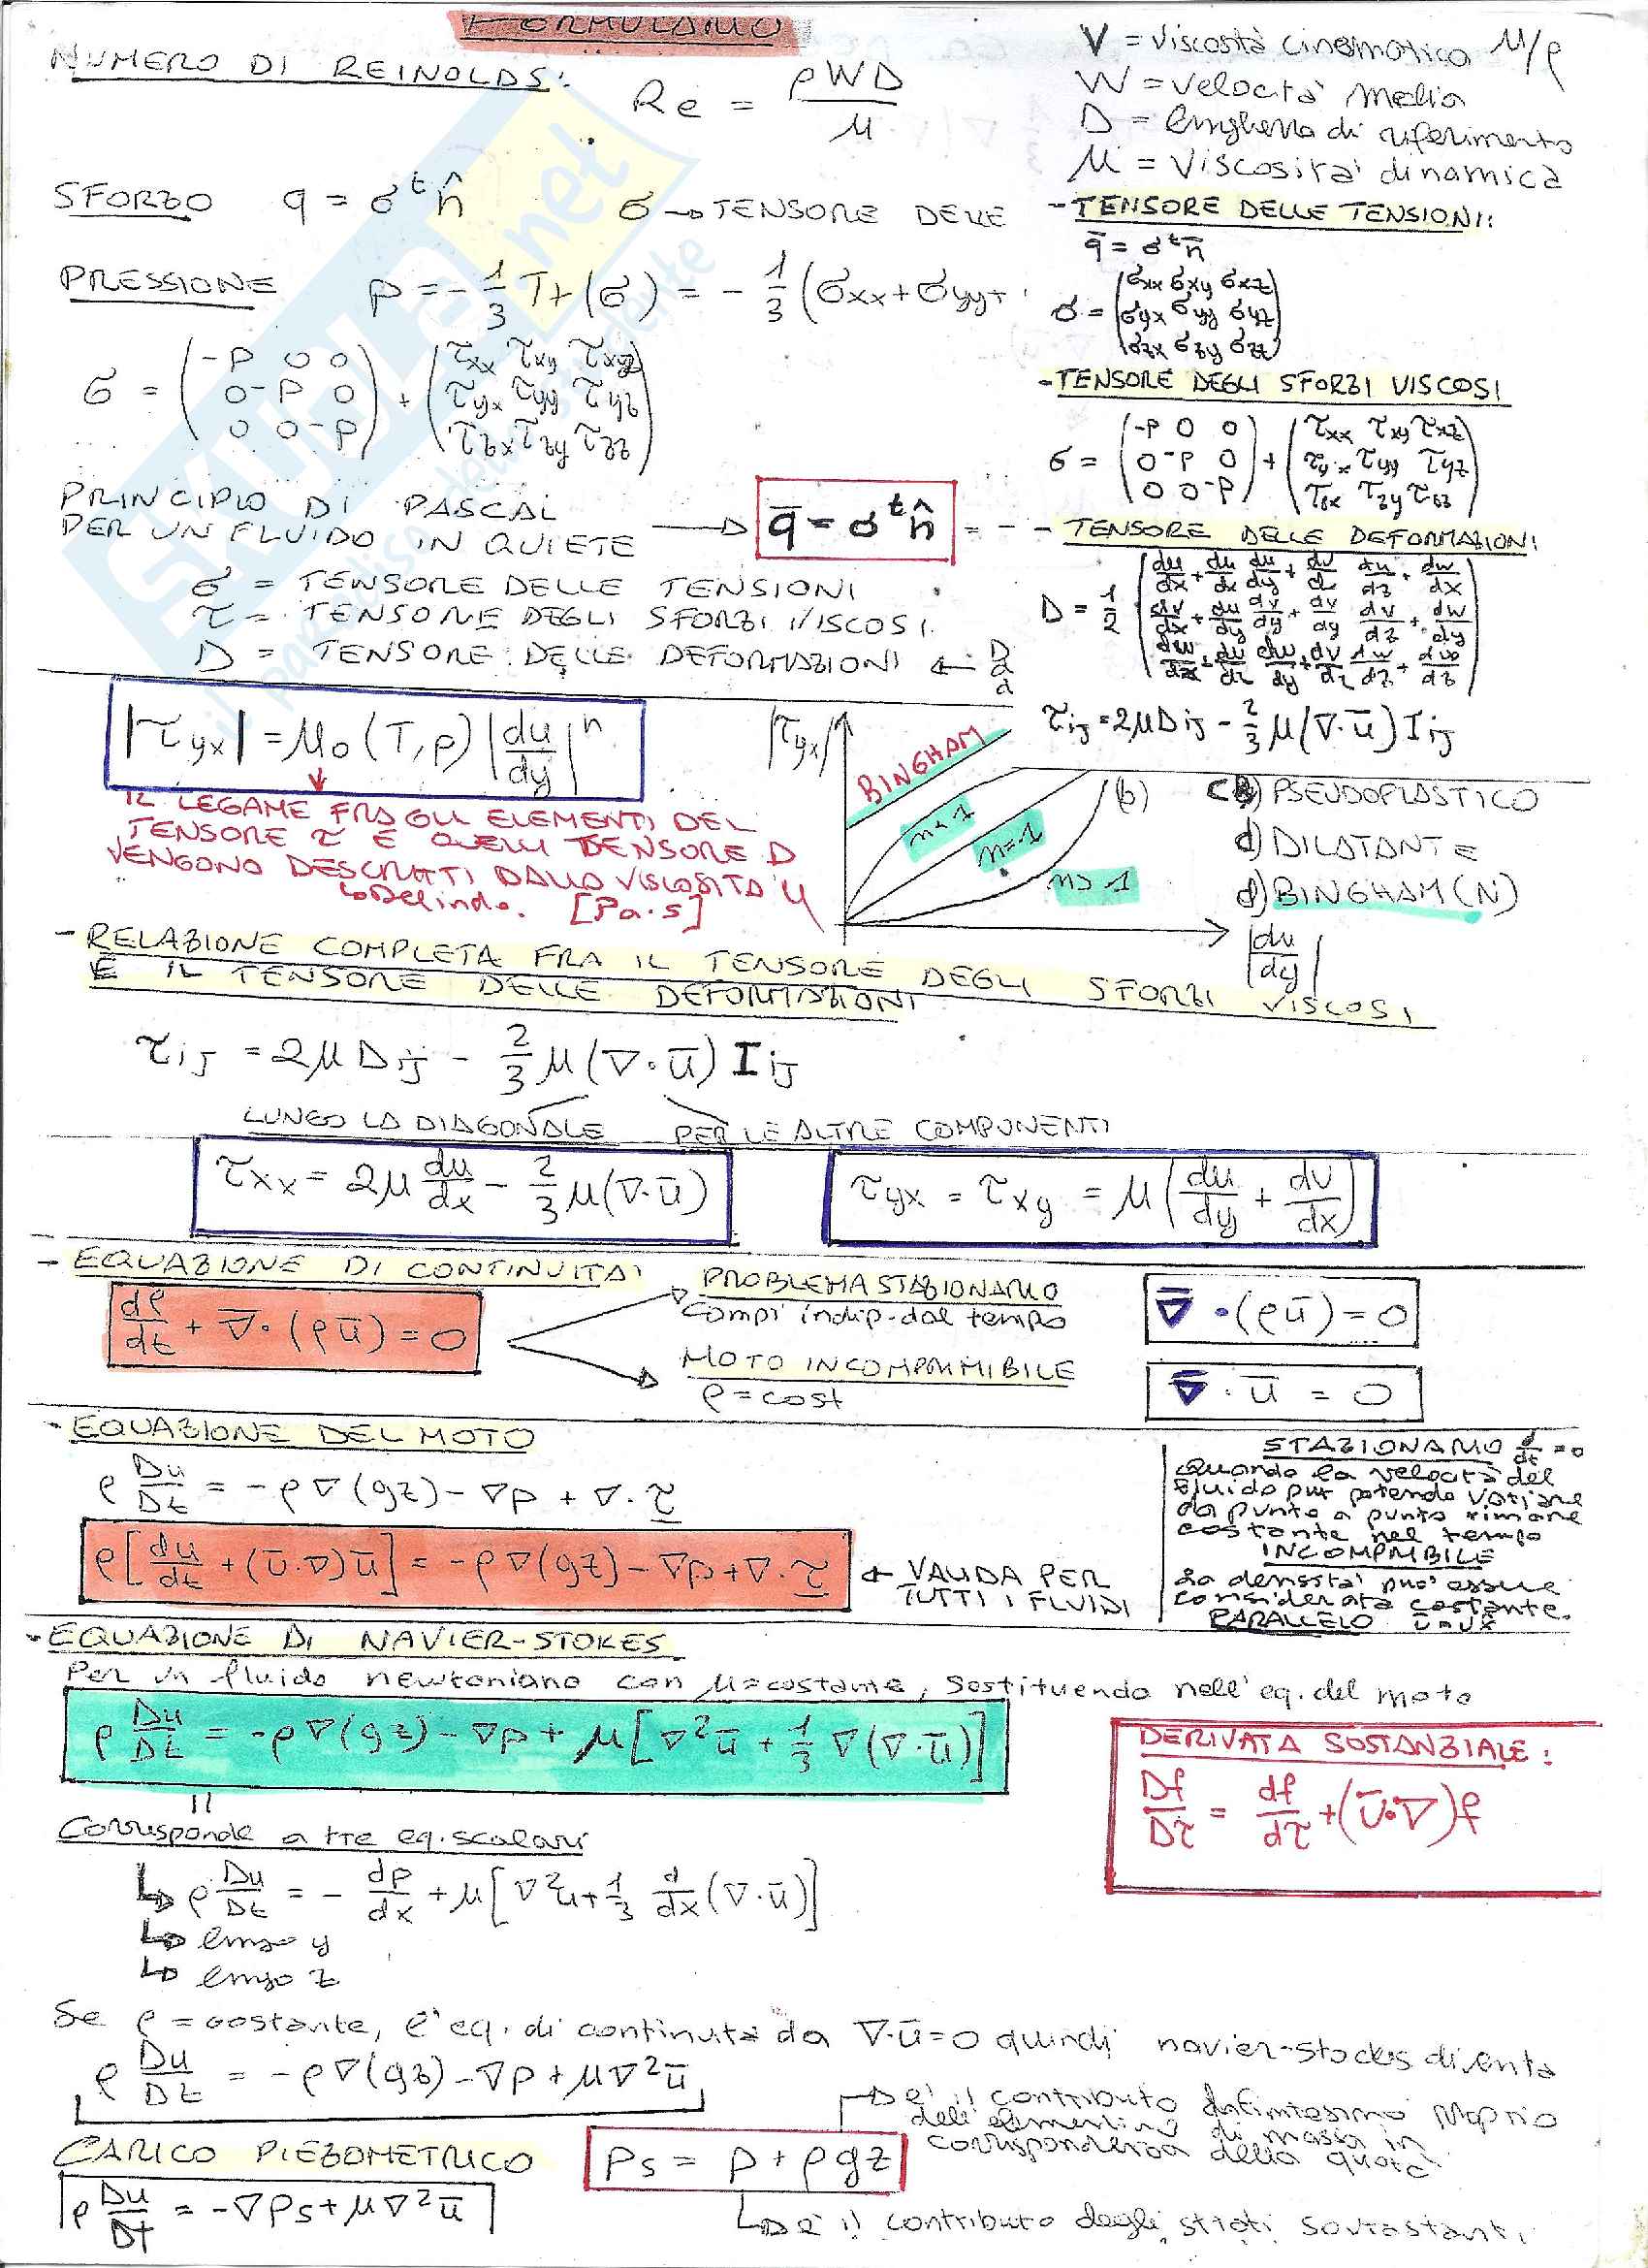 FORMULARIO
NUMERO DI REINOLDS:
Re = ρWD/μ
V = viscosità cinematica μ/ρ
W = velocità media
D = lunghezza di riferimento
μ = viscosità dinamica
SFORZO q = σᵗ n̂ σ → TENSORE DELLE
PRESSIONE p = -1/3 Tr(σ) = -1/3 (σxx+σyy+
σ = (-P 0 0 / 0 -P 0 / 0 0 -P) + (τxx τxy τxz / τyx τyy τyz / τzx τzy τzz)
- TENSORE DELLE TENSIONI:
q̄ = σᵗ n̄
σ = (σxx σxy σxz / σyx σyy σyz / σzx σzy σzz)
- TENSORE DEGLI SFORZI VISCOSI
σ = (-P 0 0 / 0 -P 0 / 0 0 -P) + (τxx τxy τxz / τyx τyy τyz / τzx τzy τzz)
PRINCIPIO DI PASCAL
PER UN FLUIDO IN QUIETE → q̄ = σᵗ n̂ = -
σ = TENSORE DELLE TENSIONI
τ = TENSORE DEGLI SFORZI VISCOSI
D = TENSORE DELLE DEFORMAZIONI ←
- TENSORE DELLE DEFORMAZIONI:
D = 1/2
τij = 2μDij - 2/3 μ(∇·ū) Iij
|τyx| = μ0 (T,p) |du/dy|ⁿ
IL LEGAME FRA GLI ELEMENTI DEL
TENSORE τ E QUELLI TENSORE D
VENGONO DESCRITTI DALLA VISCOSITÀ μ
[Pa·s]
|τyx|
BINGHAM
n<1
n=1
n>1
(b)
|du/dy|
PSEUDOPLASTICO
d) DILATANTE
d) BINGHAM (N)
- RELAZIONE COMPLETA FRA IL TENSORE DEGLI SFORZI VISCOSI
E IL TENSORE DELLE DEFORMAZIONI
τij = 2μ Dij - 2/3 μ(∇·ū) Iij
LUNGO LA DIAGONALE PER LE ALTRE COMPONENTI
τxx = 2μ du/dx - 2/3 μ(∇·ū)
τyx = τxy = μ(du/dy + dv/dx)
- EQUAZIONE DI CONTINUITA'
dρ/dt + ∇̄·(ρū) = 0
PROBLEMA STAZIONARIO
Campi indip. dal tempo
∇̄·(ρū) = 0
MOTO INCOMPRIMIBILE
ρ = cost
∇̄·ū = 0
- EQUAZIONE DEL MOTO
ρ Du/Dt = -ρ∇(gz) - ∇p + ∇·τ
ρ[du/dt + (ū·∇)ū] = -ρ∇(gz) - ∇p + ∇·τ ← VALIDA PER
TUTTI I FLUIDI
STAZIONARIO d/dt = 0
Quando la velocità del
fluido pur potendo variare
da punto a punto rimane
costante nel tempo
INCOMPRIBILE
La densità può essere
considerata costante.
PARALLELO
- EQUAZIONE DI NAVIER-STOKES
Per un fluido newtoniano con μ=costante, sostituendo nell'eq. del moto
ρ Du/Dt = -ρ∇(gz) - ∇p + μ[∇²ū + 1/3 ∇(∇·ū)]
DERIVATA SOSTANZIALE:
Df/Dτ = df/dτ + (ū·∇)f
Corrisponde a tre eq. scalari
ρ Du/Dt = - dp/dx + μ[∇²u + 1/3 d/dx(∇·ū)]
lungo y
lungo z
Se ρ = costante, l'eq. di continuità da ∇·ū=0 quindi navier-stockes diventa
ρ Du/Dt = -ρ∇(gz) - ∇p + μ∇²ū
è il contributo infinitesimo proprio
dell'elementino di massa in
corrispondenza della quota
CARICO PIEZOMETRICO Ps = p + ρgz
ρ Du/Dt = -∇Ps + μ∇²ū
è il contributo degli strati sovrastanti